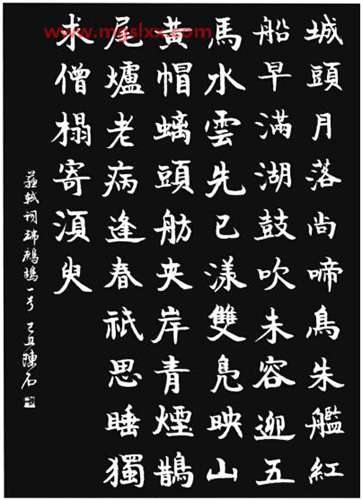 www.mgslxx.com
城頭月落尚啼鳥朱艦紅
船早滿湖鼓吹未容迎五
馬水雲先已漾雙鳧映山
黃帽螭頭舫夾岸青煙鵲
尾壚老病逢春祇思睡獨
求僧榻寄湏臾
蘇軾詞瑞鷓鴣一首 己丑陳石